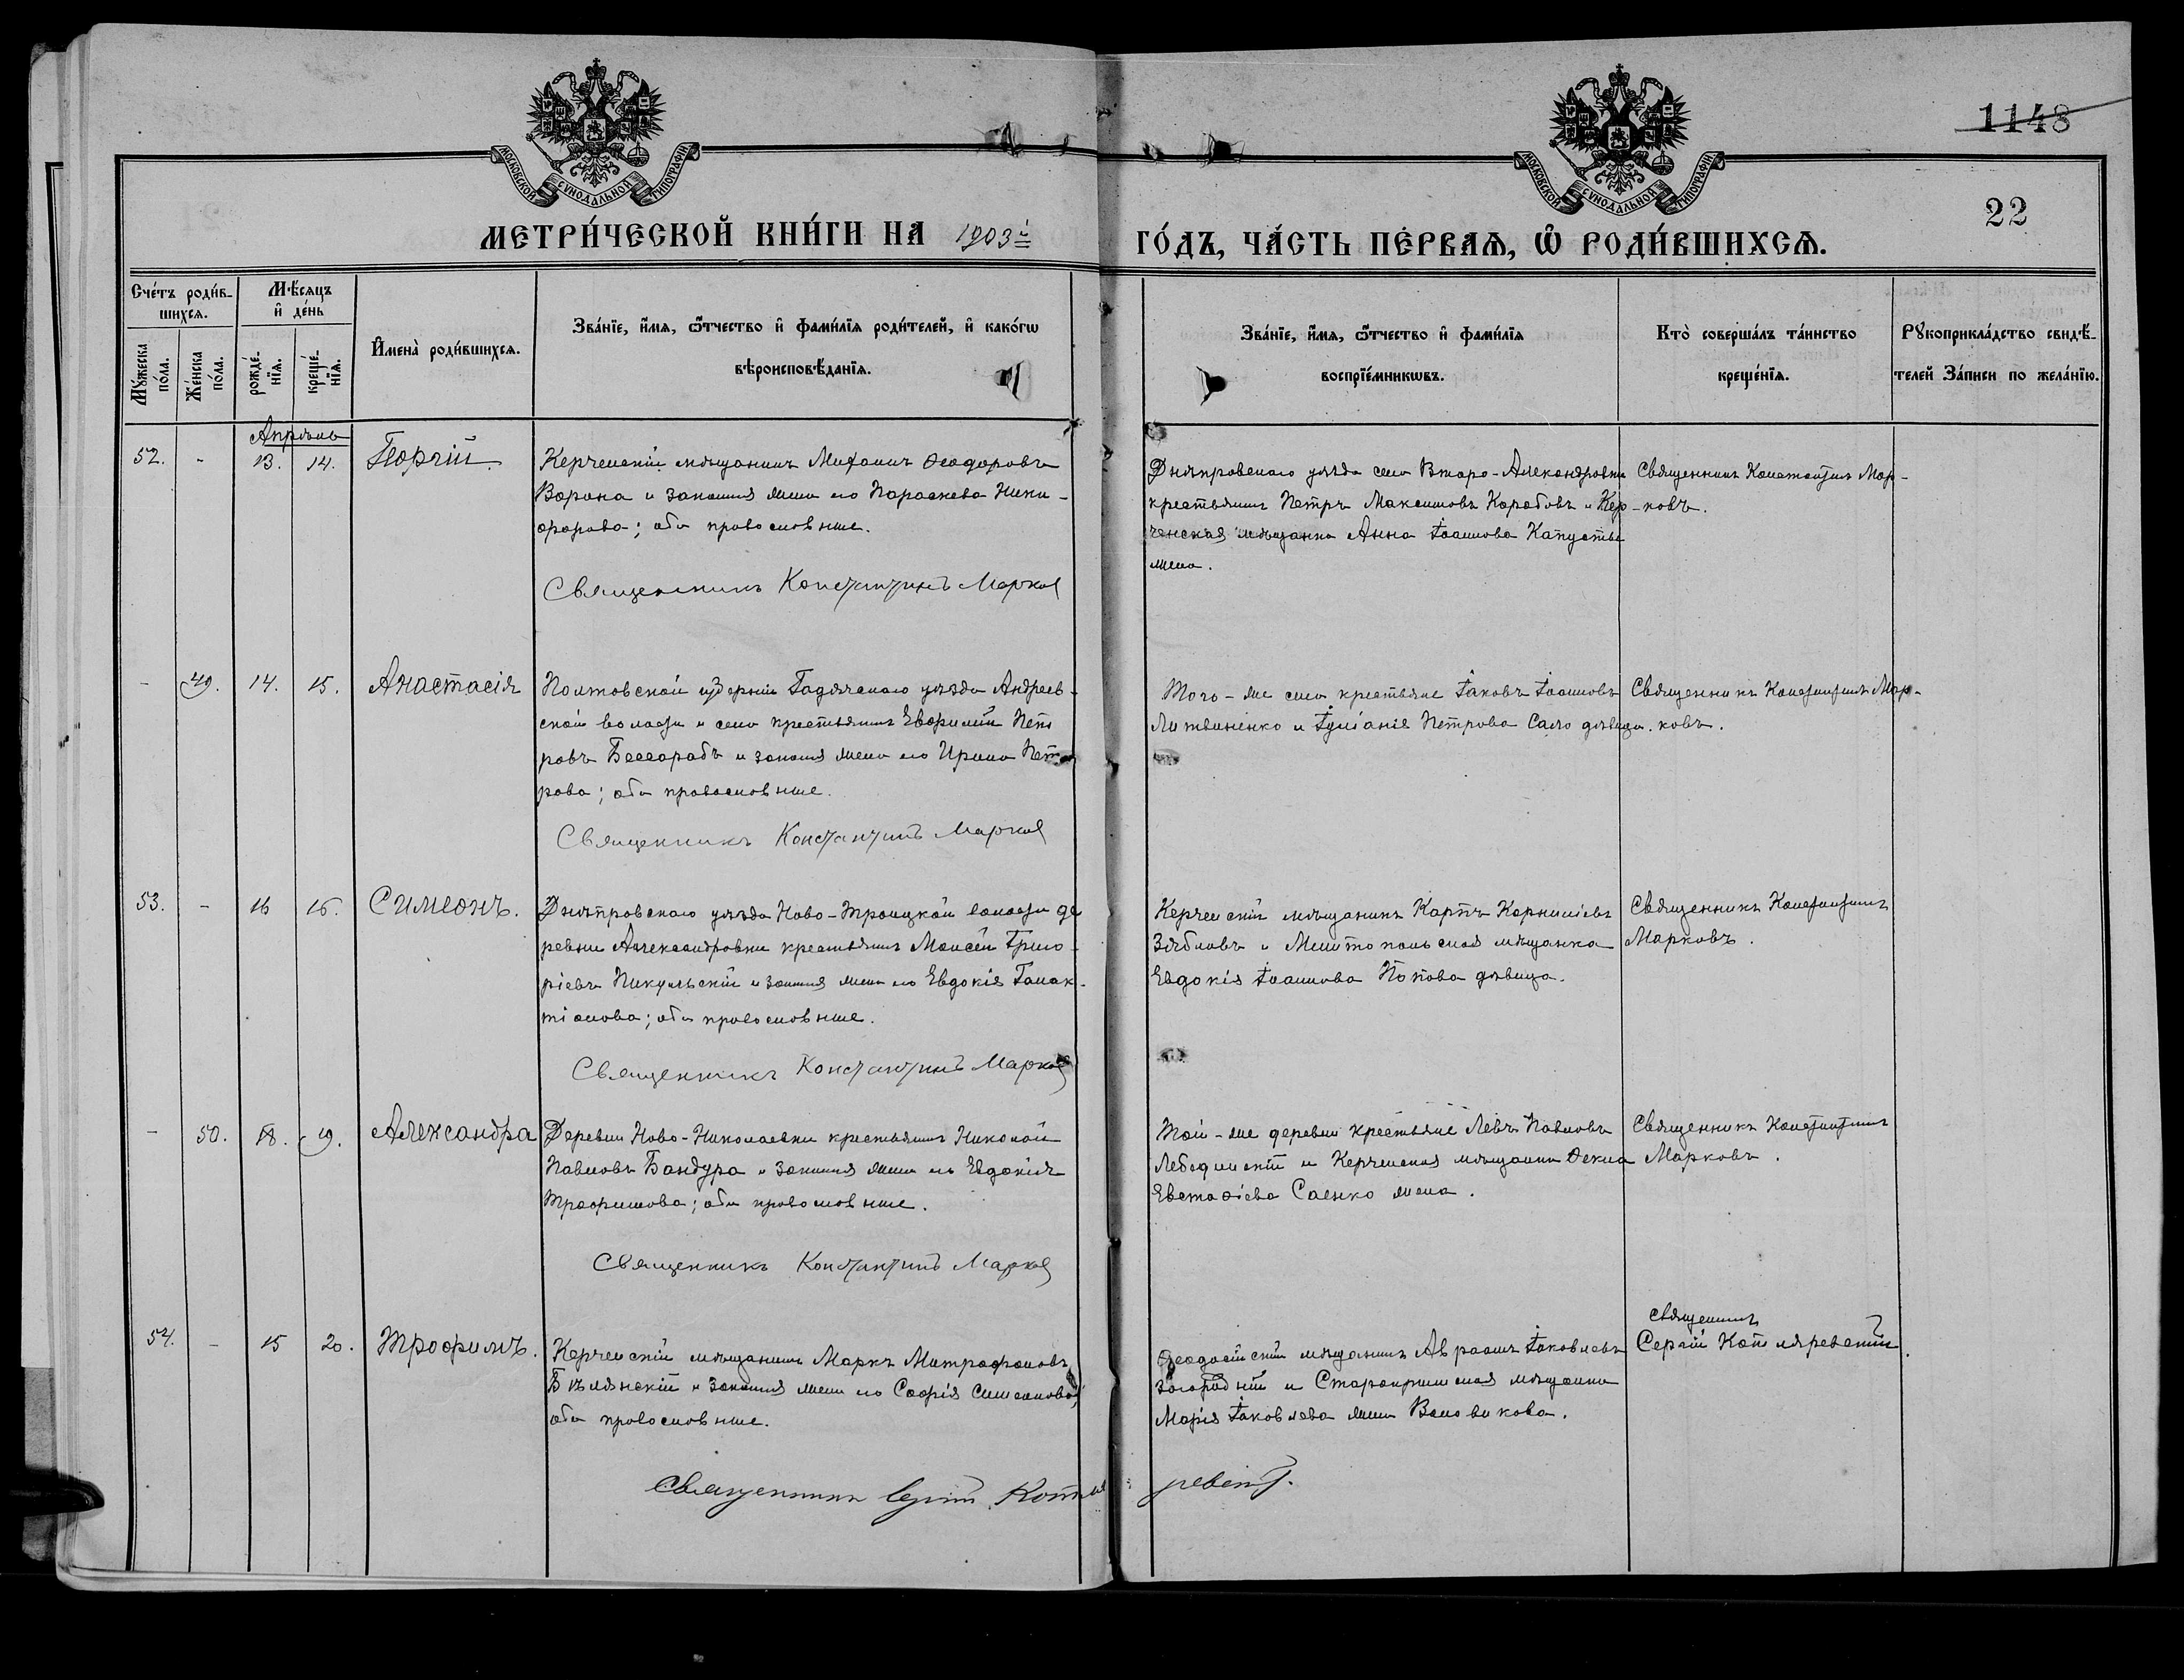 МОСКОВСКОЙ СѴНОДАЛЬНОЙ ТИПОГРАФІИ
МОСКОВСКОЙ СѴНОДАЛЬНОЙ ТИПОГРАФІИ
1148
22
МЕТРИ́ЧЕСКОЙ КНИ́ГИ НА 1903й
ГО́ДЪ, ЧА́СТЬ ПЕ́РВАѦ, Ѡ РОДИ́ВШИХСѦ.
Сче́тъ роди́в-
шихсѧ.
Мѣ́сѧцъ
и҆ де́нь
Мꙋ́жеска
по́ла.
Же́нска
по́ла.
рожде́-
нїѧ.
креще́-
нїѧ.
И҆мена̀ роди́вшихсѧ.
Зва́нїе, и҆́мѧ, ѻ҆́тчество и҆ фами́лїѧ роди́телей, и҆ како́гѡ
вѣроисповѣ́данїѧ.
Зва́нїе, и҆́мѧ, ѻ҆́тчество и҆ фами́лїѧ
воспрїе́мникѡвъ.
Кто̀ соверша́лъ та́инство
креще́нїѧ.
Рꙋкоприкла́дство свидѣ́-
телей За́писи по жела́нїю.
Апрѣль
52. - 13. 14. Георгій.
Керченскій мѣщанинъ Михаилъ Ѳеодоровъ
Ворона и законная жена его Параскева Ники-
форова; оба православные.
Священникъ Константинъ Марковъ
Днѣпровскаго уѣзда села Второ-Александровки
крестьянинъ Петръ Максимовъ Коробовъ и Кер-
ченская мѣщанка Анна Іоаннова Капуста
жена.
Священникъ Константинъ Мар-
ковъ.
- 49. 14. 15. Анастасія
Полтовской губерніи Гадячскаго уѣзда Андреев-
ской волости и села крестьянинъ Евфимій Пет
ровъ Бессарабъ и законная жена его Ирина Пет
рова; оба православные.
Священникъ Константинъ Марковъ
Того-же села крестьяне Іаковъ Іоанновъ
Литвиненко и Іуліанія Петрова Сало дѣвица.
Священникъ Константинъ Мар-
ковъ.
53. - 16 16. Симеонъ.
Днѣпровскаго уѣзда Ново-Троицкой волости де
ревни Александровки крестьянинъ Моисей Григо-
ріевъ Пикульскій и законная жена его Евдокія Галак-
тіонова; оба православные.
Священникъ Константинъ Марковъ
Керченскій мѣщанинъ Карпъ Корниліевъ
Зябловъ и Мелитопольская мѣщанка
Евдокія Іоаннова Попова дѣвица.
Священникъ Константинъ
Марковъ.
- 50. 18. 19. Александра
Деревни Ново-Николаевки крестьянинъ Николай
Павловъ Бандура и законная жена его Евдокія
Трофимова; оба православные.
Священникъ Константинъ Марковъ
Той-же деревни крестьяне Левъ Павловъ
Лебединскій и Керченская мѣщанка Ѳекла
Евстаѳіева Саенко жена.
Священникъ Константинъ
Марковъ.
54. - 15 20. Трофимъ.
Керченскій мѣщанинъ Маркъ Митрофановъ
Бѣлянскій и законная жена его Софія Симеонова;
оба православные.
Священникъ Сергій Котляревскій.
Ѳеодосійскій мѣщанинъ Авраамъ Іаковлевъ
Загородній и Старокрымская мѣщанка
Марія Іаковлева жена Воловикова.
священникъ
Сергій Котляревскій.